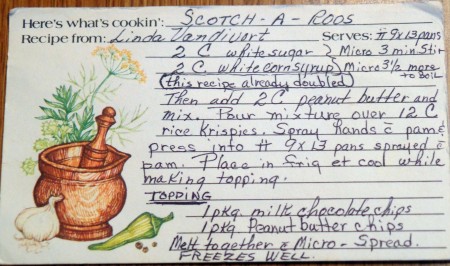 Here's what's cookin': SCOTCH-A-ROOS
Recipe from: Linda Vandivert Serves: # 9x13 pans
2 C. white sugar } Micro 3 min Stir
2 C. white corn syrup } Micro 3½ more to boil
(this recipe already doubled)
Then add 2 C peanut butter and
mix. Pour mixture over 12 C
rice Krispies. Spray hands c pam &
press into # 9x13 pans sprayed c
pam. Place in frig et cool while
making topping.
TOPPING
1 pkg. milk chocolate chips
1 pkg. Peanut butter chips
Melt together & Micro - Spread.
FREEZES WELL.